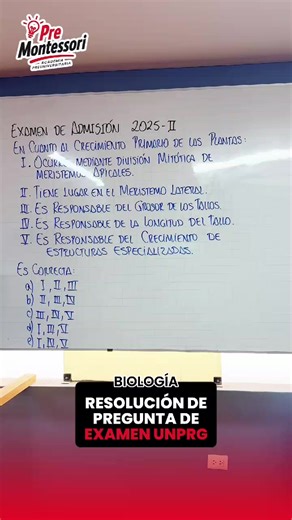 Pre
Montessori
ACADEMIA
PREUNIVERSITARIA
EXAMEN DE ADMISIÓN 2025-II
EN CUANTO AL CRECIMIENTO PRIMARIO DE LAS PLANTAS:
I. OCURRE MEDIANTE DIVISIÓN MITÓTICA DE
MERISTEMOS APICALES.
II. TIENE LUGAR EN EL MERISTEMO LATERAL.
III. ES RESPONSABLE DEL GROSOR DE LOS TALLOS.
IV. ES RESPONSABLE DE LA LONGITUD DEL TALLO.
V. ES RESPONSABLE DEL CRECIMIENTO DE
ESTRUCTURAS ESPECIALIZADAS.
ES CORRECTA:
a) I, II, III
b) II, III, IV
c) III, IV, V
d) I, III, V
e) I, IV, V
BIOLOGÍA
RESOLUCIÓN DE
PREGUNTA DE
EXAMEN UNPRG